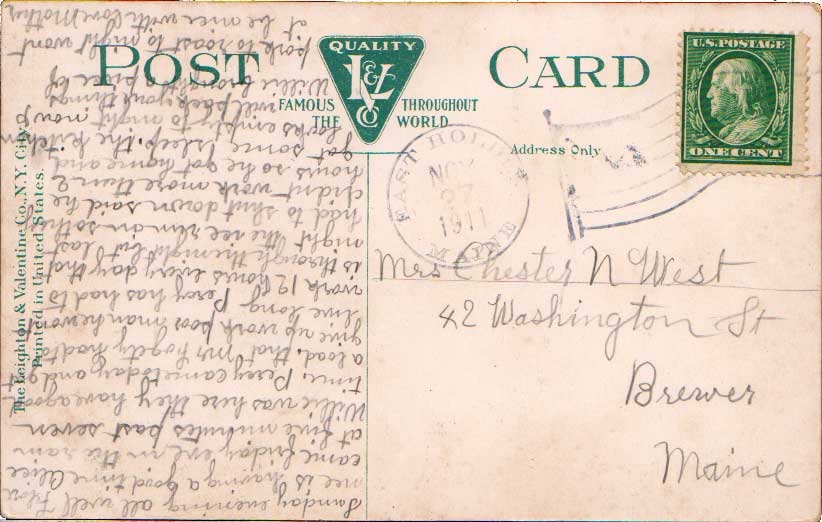 POST CARD
QUALITY
L&V
CO
FAMOUS THROUGHOUT
THE WORLD
Address Only
U.S. POSTAGE
ONE CENT
EAST HOLDEN
NOV
27
1911
MAINE
Mrs Chester N West
42 Washington St
Brewer
Maine
The Leighton & Valentine Co., N.Y. City.
Printed in United States.
Sunday evening all well Flor
nee is having a good time Alice
came friday eve on the train
at five minutes past seven
Willie was here they have a good
time. Percy came today and got
a load. that Mr Fogety had to
give up work poor man he wont
live long Percy has had to
work 12 hours every day that
is through the night but last
night the ice run in so they
had to shut down said he
didnt work more then 2
hours so he got home and
got some sleep. the kitchen
looks empty to night now
I will pack your things
Willie brought a piece of
pork to roast to night wont
it be nice with love Mother